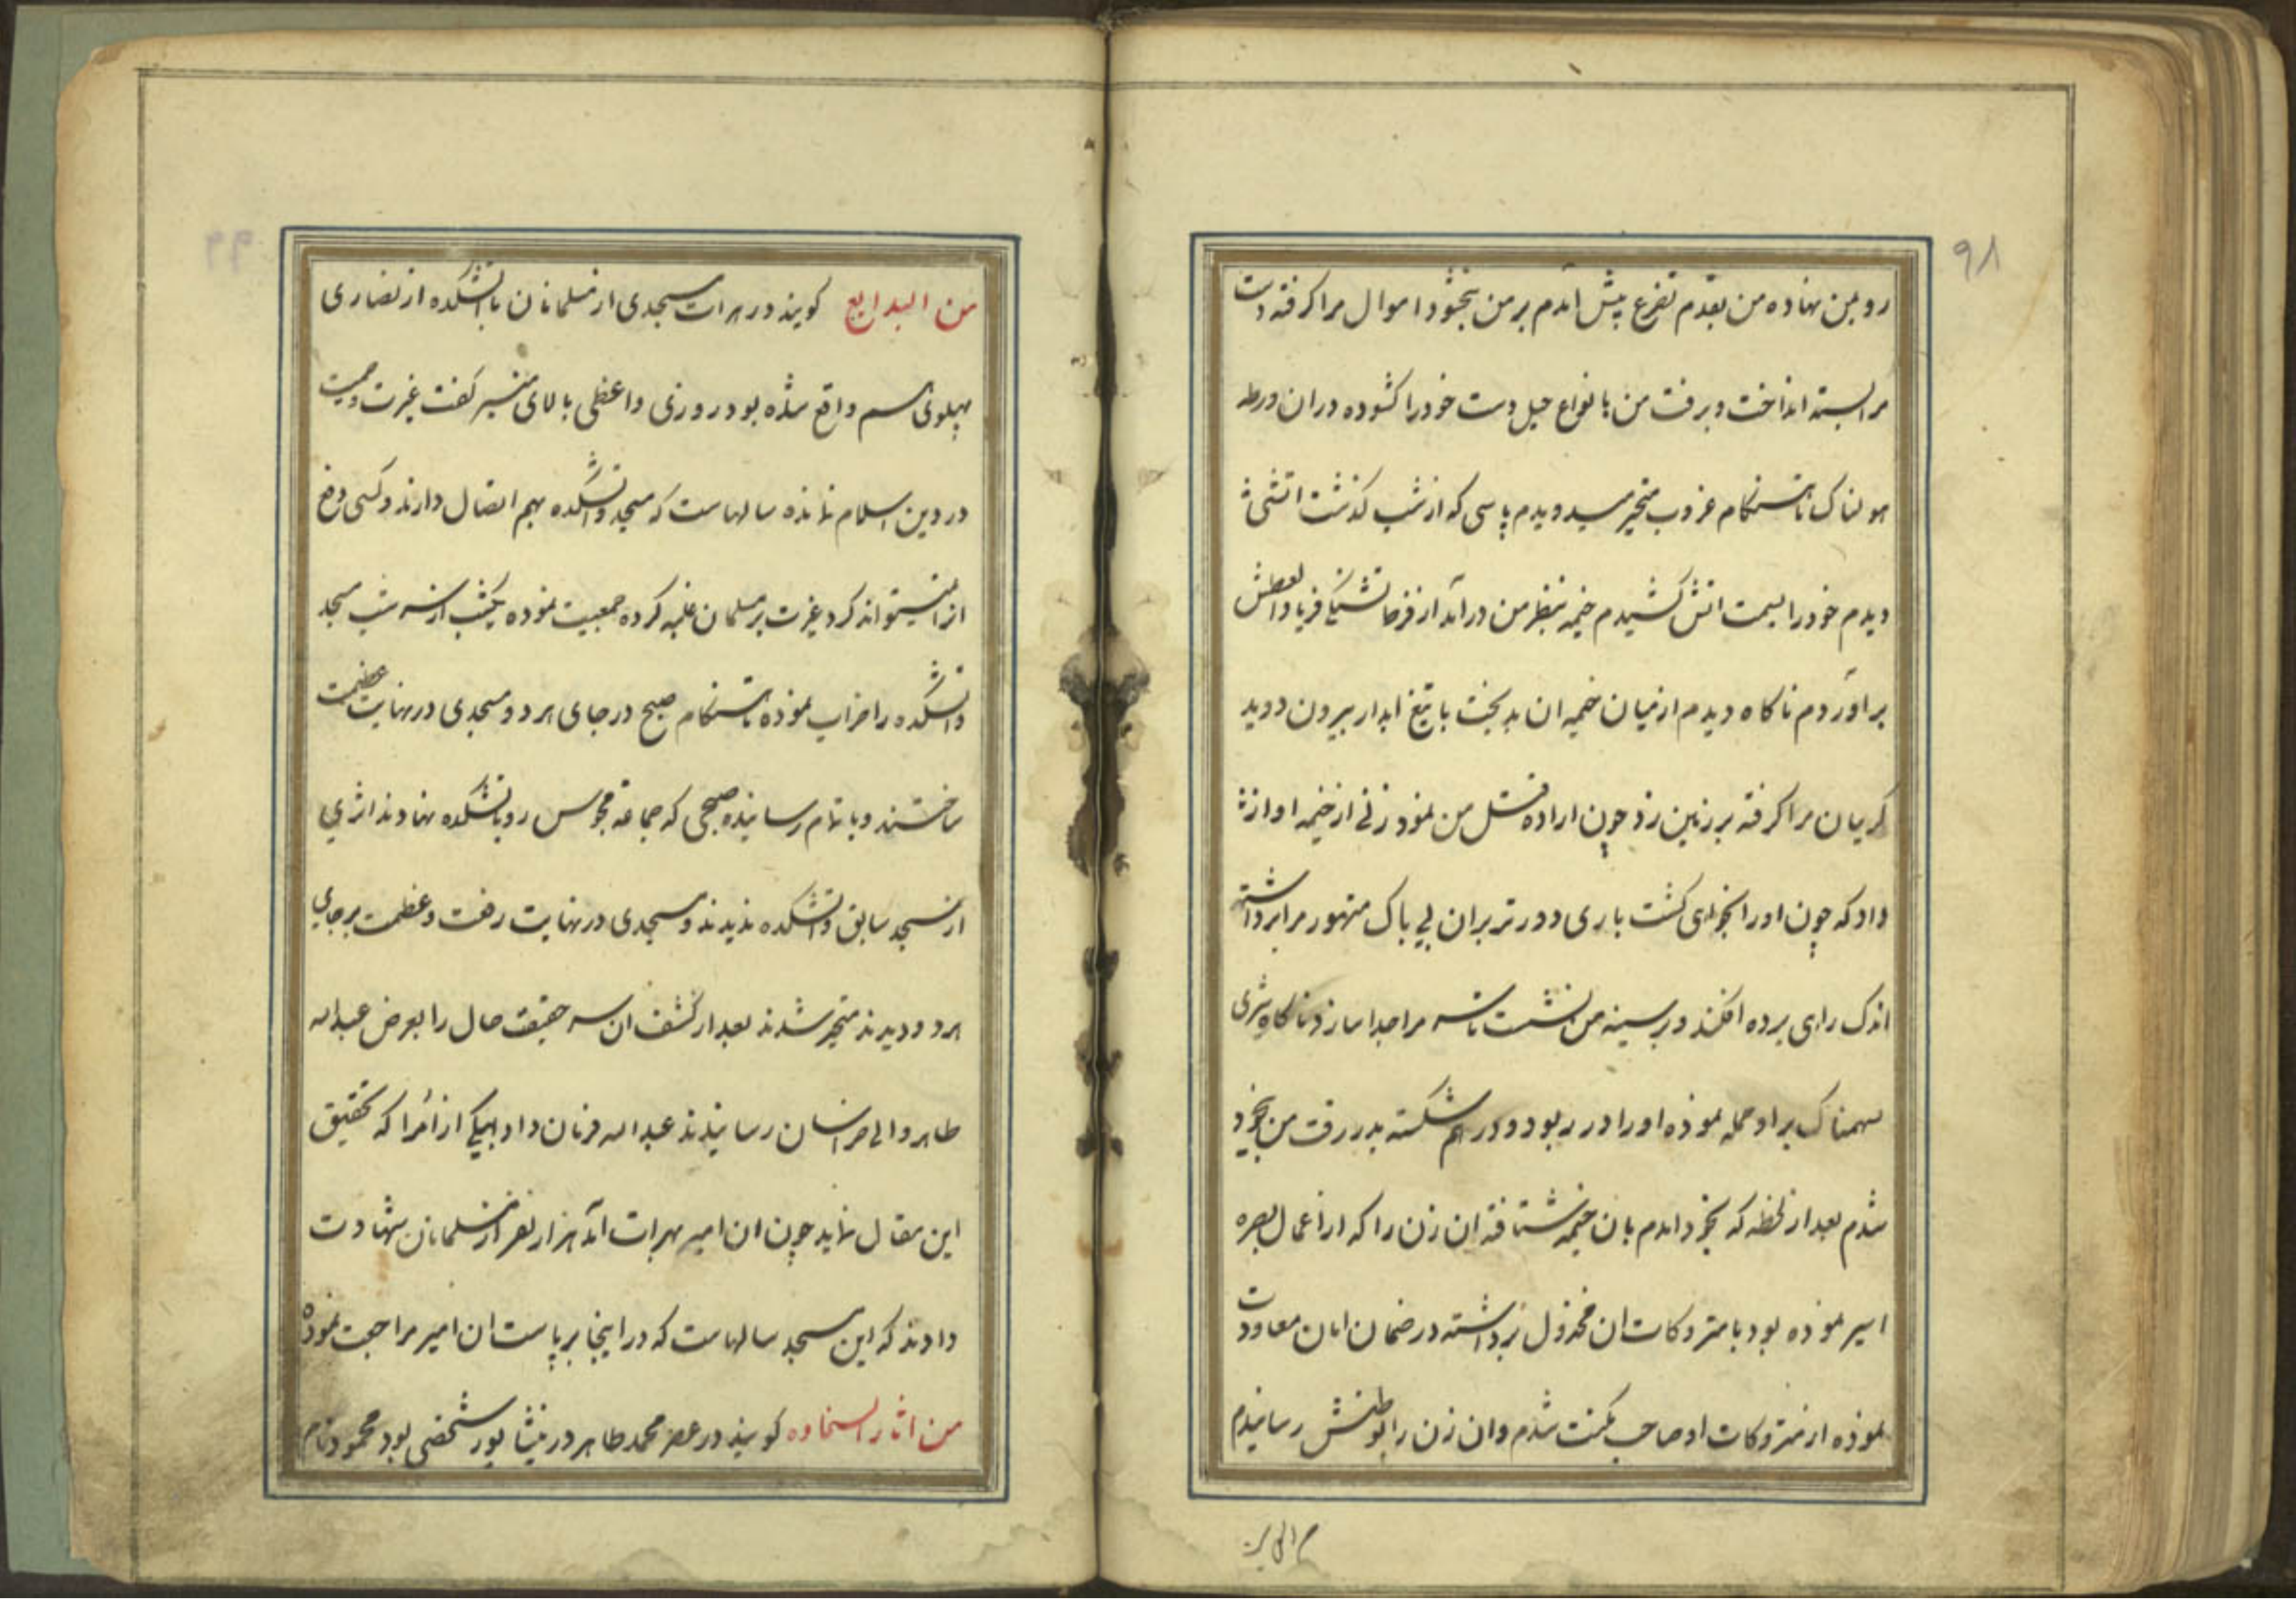 ۹۸
رو بمن نهاده من بقدم تضرع پیش آمدم بر من نبخشود اموال مرا گرفته دست
مرا بسته انداخت و برفت من بانواع حیل دست خود را کشوده در ان ورطه
هولناک تا هنکام غروب متحیر میدویدم پاسی که از شب کذشت اتشی
دیدم خود را بسمت اتش کشیدم خیمه بنظر من در آمد از فرط تشنکی فریاد العطش
بر آوردم ناکاه دیدم از میان خیمه ان بدبخت با تیغ ابدار بیرون دوید
کریبان مرا کرفته بر زمین زد چون اراده قتل من نمود زنی از خیمه اواز
داد که چون او را بخواهی کشت باری دورتر بر ان بی باک متهور مرا برداشته
اندک راهی برده افکند و بر سینه من نشست تا سر مرا جدا سازد ناکاه شیری
سهمناک بر او حمله نموده او را در ربود و در هم شکسته بدر رفت من بیخود
شدم بعد از لحظه که بخود امدم بان خیمه شتافته ان زن را که از اعمال بصره
اسیر نموده بود با متروکات ان مخذول برداشته در ضمان امان معاودت
نموده از متروکات او صاحب مکنت شدم و ان زن را بوطنش رسانیدم
۹۹
من البدایع کویند در هرات مسجدی از مسلمانان با اتشکده از نصاری
پهلوی هم واقع شده بود روزی واعظی بالای منبر کفت غیرت و حمیت
در دین اسلام نمانده سالهاست که مسجد و اتشکده بهم اتصال دارند و کسی دفع
انرا نمیتواند کرد غیرت بر مسلمانان غلبه کرده جمعیت نموده یکشب از سر شب مسجد
و اتشکده را خراب نموده تا هنکام صبح در جای هر دو مسجدی در نهایت عظمت
ساختند و باتمام رسانیده صبحی که جماعة مجوس رو باتشکده نهادند اثری
از مسجد سابق و اتشکده ندیدند و مسجدی در نهایت رفعت و عظمت بر جای
هر دو دیدند متحیر شدند بعد از کشف ان سر حقیقت حال را بعرض عبدالله
طاهر والی خراسان رسانیدند عبدالله فرمان داد بیکی از امرا که تحقیق
این مقال نماید چون ان امیر بهرات آمد هزار نفر از مسلمانان شهادت
دادند که این مسجد سالهاست که در اینجا بر پاست ان امیر مراجعت نموده
من اثار السخاوه کویند در عصر محمد طاهر در نیشابور شخصی بود محمود نام